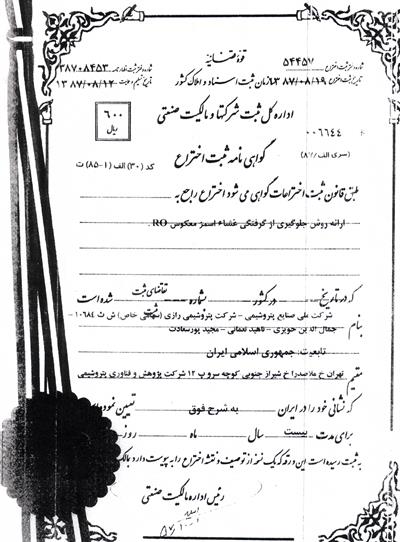 قوهٔ قضائیه
شماره دفتر ثبت اختراع ۵۴۴۵۷
شماره دفتر ثبت اظهارنامه ۳۸۷۰۸۴۵۳
سازمان ثبت اسناد و املاک کشور
تاریخ ثبت اختراع ۱۳۸۷/۰۸/۱۹
تاریخ تسلیم ۱۳۸۷/۰۸/۱۲
اداره کل ثبت شرکتها و مالکیت صنعتی
۶۰۰
ریال
۰۰۶۶۴۴
(سری الف/۸۷)
گواهی نامه ثبت اختراع
کد (۳۰) الف (۱-۸۵) ت
طبق قانون ثبت اختراعات گواهی می شود اختراع راجع به
ارائه روش جلوگیری از گرفتگی غشاء اسمز معکوس RO .
که در تاریخ در کشور شماره تقاضای ثبت شده است
شرکت ملی صنایع پتروشیمی - شرکت پتروشیمی رازی (سهامی خاص) ش ث ۱۰۶۸۴ -
بنام جمال الدین حویزی - ناهید نعمانی - مجید پورسعادت
تابعیت: جمهوری اسلامی ایران
مقیم تهران خ ملاصدرا خ شیراز جنوبی کوچه سرو پ ۱۲ شرکت پژوهش و فناوری پتروشیمی
که نشانی خود را در ایران به شرح فوق تعیین نموده
برای مدت بیست سال ماه روز
به ثبت رسیده است این ورقه که یک نسخه از توصیف و نقشه اختراع را به پیوست دارد
رئیس اداره مالکیت صنعتی